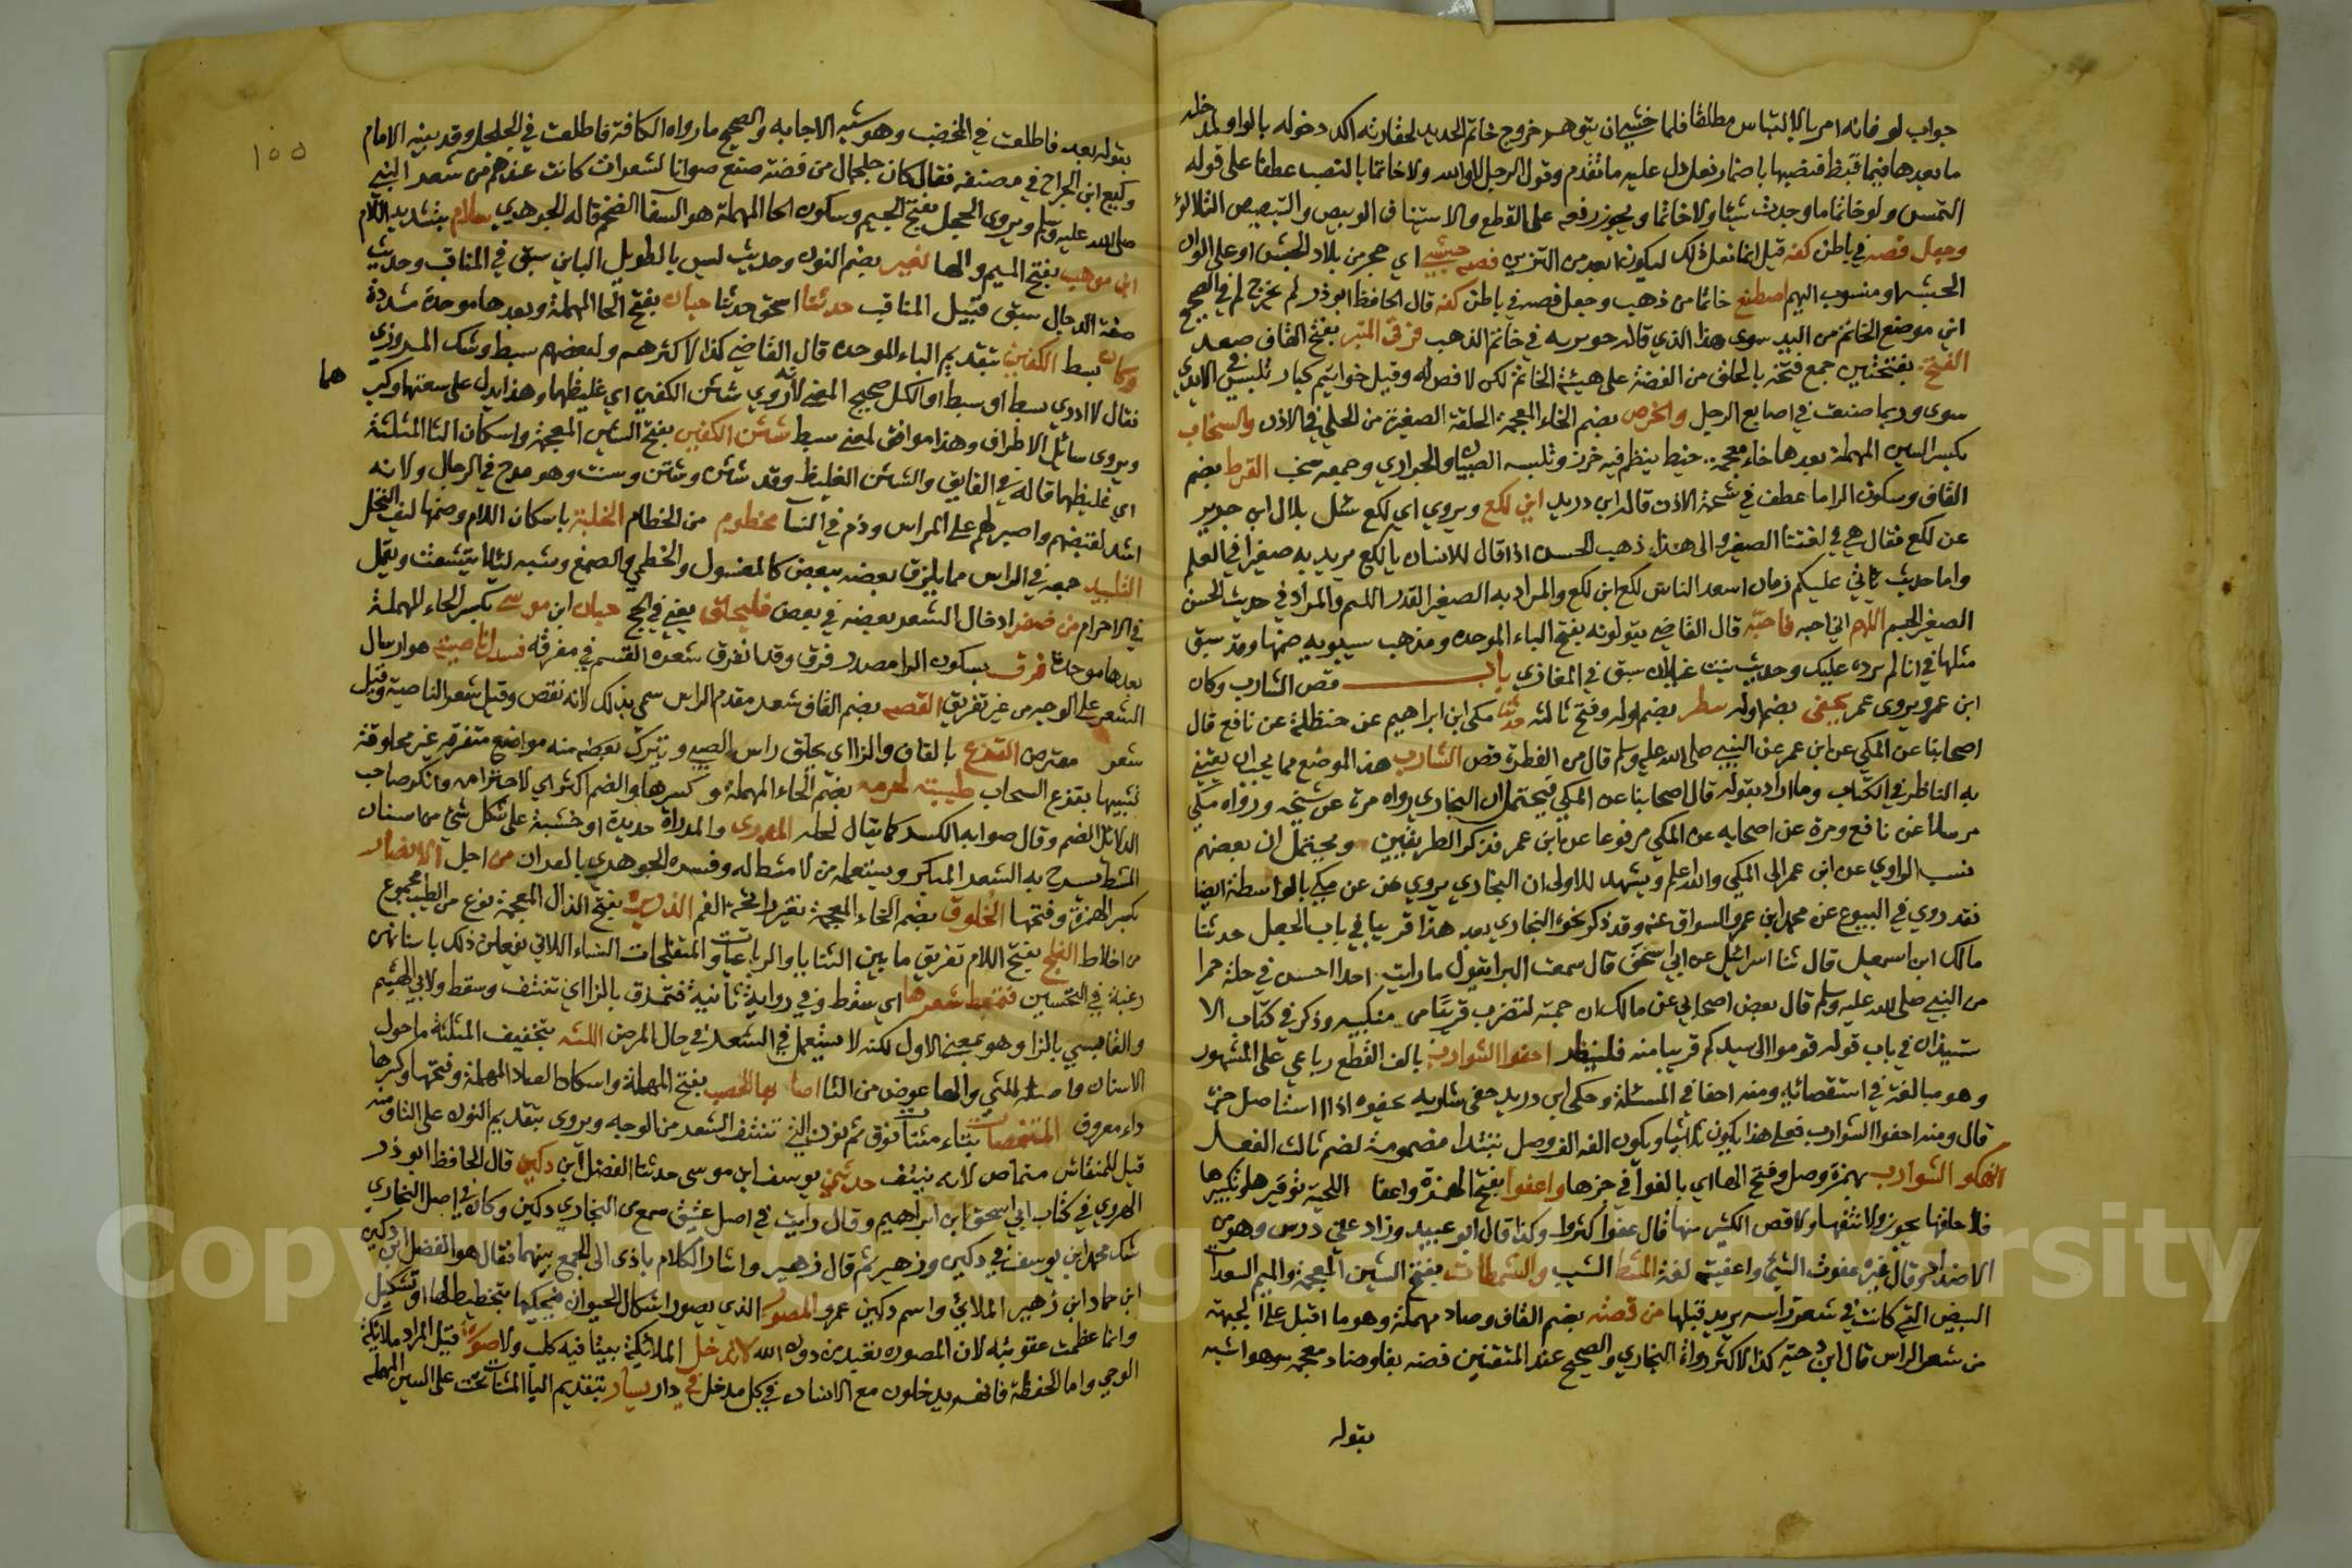 جواب لو فانه امر بالالتماس مطلقا فلما خشي ان يتوهم خروج خاتم الحديد لحقارته اكد دخوله بالواو لمدخله
ما بعدها فيما قبلها فنصبها باضمار فعل دل عليه ما تقدم وقول الرجل لا والله ولا خاتما بالنصب عطفا على قوله
التمس ولو خاتما ما وجدت شيئا ولا خاتما ويجوز رفعه على القطع والاستيناف الوبيص والتبصيص التلالؤ
وجعل فصه في باطن كفه قيل انما فعل ذلك ليكون ابعد من التزين فصه حبشي اي حجر من بلاد الحبش او على الوان
الحبشة او منسوب اليهم اصطنع خاتما من ذهب وجعل فصه في باطن كفه قال الحافظ ابو ذر لم يخرج لم في الصحيح
اني موضع الخاتم من اليد سوى هذا الذي قاله جويريه في خاتم الذهب
الفتخ بفتختين جمع فتخة بالحلق من الفضة على هيئة الخاتم لكن لا فص له وقيل خواتيم كبار تلبس في الايدي
سوى وربما صنعت في اصابع الرجل والخرص بضم الخاء المعجمة الحلقة الصغيرة من الحلي في الاذن والسخاب
بكسر السين المهملة بعدها خاء معجمة خيط ينظم فيه خرز وتلبسه الصبيان والجواري وجمعه سخب القرط بضم
القاف وسكون الرا ما عطف في شحمة الاذن قاله ابن دريد اين لكع ويروى اي لكع سئل بلال ابن جرير
عن لكع فقال هي في لغتنا الصغير والى هذا ذهب الحسن اذا قال للانسان يا لكع يريد به صغيرا في العلم
واما حديث ياتي عليكم زمان اسعد الناس لكع ابن لكع والمراد به الصغير القدر اللئيم والمراد في حديث الحسن
الصغير الجسم اللهم اني احبه فاحبه قال القاضي يقولونه بفتح الباء الموحده ومذهب سيبويه ضمها وقد سبق
مثلها في انا لم نرده عليك وحديث بنت غيلان سبق في المغازي باب قص الشارب وكان
ابن عمر ويروى عمر يحفي بضم اوله ينظر بضم اوله وفتح ثالثه حدثنا مكي ابن ابراهيم عن حنظلة عن نافع قال
اصحابنا عن المكي عن ابن عمر عن النبي صلى الله عليه وسلم قال من الفطرة قص الشارب هذا الموضع مما يجب ان يعتني
به الناظر في الكتاب وما اراد بقوله قال اصحابنا عن المكي فيحتمل ان البخاري رواه مرة عن شيخه ورواه مكي
مرسلا عن نافع ومرة عن اصحابه عن المكي مرفوعا عن ابن عمر فذكر الطريقين ويحتمل ان بعضهم
نسب الراوي عن ابن عمر الى المكي والله اعلم ويشهد للاول ان البخاري يروي عن مكي بالواسطة ايضا
فقد روي في البيوع عن محمد ابن عمرو السواق عنه وقد ذكر نحوه البخاري بعد هذا قريبا في باب الجعد حدثنا
مالك ابن اسمعيل قال ثنا اسرائيل عن ابي اسحق قال سمعت البرا يقول ما رايت احدا احسن في حلة حمرا
من النبي صلى الله عليه وسلم قال بعض اصحابي عن مالك ان جمته لتضرب قريبا من منكبيه وذكر في كتاب الا
ستيذان في باب قوله قوموا الى سيدكم قريبا منه فلينظر احفوا الشوارب بالف القطع رباعي على المشهور
وهو مبالغة في استقصائه ومنه احفا في المسئلة وحكى ابن دريد حفى شاربه يحفوه اذا استاصل جزه
قال ومنه احفوا الشوارب فعلى هذا يكون ثلاثيا ويكون الفه الف وصل تبتدا مضمومة لضم ثالث الفعل
انهكوا الشوارب بهمزة وصل وفتح الها اي بالغوا في جزها واعفوا بفتح الهمزة واعفا اللحية توفيرها وتكثيرها
فلا حلقها يجوز ولا نتفها ولا قص الكثير منها قال عفوا كثروا وكذا قال ابو عبيد وزاد على درس وهو من
الاضداد وقال غيره عفوت الشيء واعفيته لغة المشط الشيب والشمطات بفتح الشين المعجمة والميم الشعرات
البيض التي كانت في شعر راسه يريد قبلها من قصة بضم القاف وصاد مهملة وهو ما اقبل على الجبهة
من شعر الراس قال ابن دحية كذا لاكثر رواة البخاري والصحيح عند المتقنين فضه بفا وضاد معجمه وهو اشبه
بقوله
١٥٥
بقوله بعد فاطلعت في المخضب وهو شبه الاجانه والصحيح ما رواه الكافة فاطلعت في الجلجل وقد بينه الامام
وكيع ابن الجراح في مصنفه فقال كان جلجلا من فضة صنع صوانا لشعرات كانت عندهم من شعر النبي
صلى الله عليه وسلم ويروى الجحل بفتح الجيم وسكون الحا المهملة هو السقا الضخم قاله الجوهري سلام بتشديد اللام
ابن موهب بفتح الميم والها نصير بضم النون وحديث ليس بالطويل الباين سبق في المناقب وحديث
صفة الدجال سبق قبيل المناقب حدثنا اسحق حدثنا حبان بفتح الحا المهملة وبعدها موحدة مشددة
وكان بسط الكفين بتقديم الباء الموحده قال القاضي كذا لاكثرهم ولبعضهم سبط وشك المروزي
فقال لا ادري بسط او سبط او الكل صحيح المعنى لانه روي شثن الكفين اي غليظهما وهذا يدل على سعتهما وكبر
هما
ويروى سائل الاطراف وهذا موافق لمعنى سبط شثن الكفين بفتح الشين المعجمة واسكان الثا المثلثة
اي غليظهما قاله في الفايق والشثن الغليظ وقد شثن وشثن وسنت وهو مدح في الرجال ولانه
اشد لقبضهم واصبر لهم على المراس وذم في النسا مخطوم من الخطام الخلبة باسكان اللام وضمها ليف النخل
التلبيد جمعه في الراس مما يلزق بعضه ببعض كالغسول والخطمي والصمغ وشبه لئلا يتشعث ويقمل
في الاحرام من ضفر ادخال الشعر بعضه في بعض فليحلق يعني في الحج حبان ابن موسى بكسر الحاء المهملة
بعدها موحدة فرق بسكون الرا مصدر فرق وقد انفرق شعره القسم في مفرقه فسدل ناصيته هو ارسال
الشعر على الوجه من غير تفريق القصه بضم القاف شعر مقدم الراس سمي بذلك لانه نقص وقيل شعر الناصية وقيل
شعر معترض القزع بالقاف والزاي يحلق راس الصبي ويترك بعضه منه مواضع متفرقه غير محلوقة
تشبيها بقزع السحاب طيبته لحرمه بضم الحاء المهملة وكسرها والضم اكثر اي لاحرامه وانكر صاحب
الدلائل الضم وقال صوابه الكسر كما يقال لحله المدرى والمدراة حديدة او خشبة على شكل شئ من اسنان
المشط يسرح به الشعر المتلبد ويستعمله من لا مشط له وفسره الجوهري بالقرن من اجل الابصار
بكسر الهمزة وفتحها الخلوف بضم الخاء المعجمة تغير رائحة الفم الذريرة بفتح الذال المعجمة نوع من الطيب مجموع
من اخلاط الفلج بفتح اللام تفريق ما بين الثنايا والرباعيات والمتفلجات النساء اللاتي يفعلن ذلك باسنانهن
رغبة في التحسين فتمعط شعرها اي سقط وفي رواية ثانية فتمزق بالزاي تنتف وسقط ولابي الهيثم
والقابسي بالزا وهو بمعنى الاول لكنه لا يستعمل في الشعر في حال المرض اللثه بتخفيف المثلثة ما حول
الاسنان واصله اللثي والها عوض من الثا اصابها الحصبه بفتح المهملة واسكان الصاد المهملة وفتحها وكسرها
داء معروف المتنمصات بتاء مثناة فوق ثم نون التي تنتف الشعر من الوجه ويروى بتقديم النون على التا ومنه
قيل للمنقاش منماص لانه ينتف حدثني يوسف ابن موسى حدثنا الفضل ابن دكين قال الحافظ ابو ذر
الهروي في كتاب ابي اسحق ابن ابراهيم وقال رايت في اصل عتيق سمع من البخاري دكين وكان في اصل البخاري
شك محمد ابن يوسف في دكين وزهير ثم قال زهير واشار الكلاباذي الى الجمع بينهما فقال هو الفضل ابن دكين
ابن حماد ابن زهير الملائي واسم دكين عمرو المصور الذي يصور اشكال الحيوان فيحكيها بتخطيط لها او تشكيل
وانما عظمت عقوبته لان المصوره تعبد من دون الله لا تدخل الملائكة بيتا فيه كلب ولا صورة قيل المراد ملائكة
الوحي واما الحفظة فانهم يدخلون مع الانسان في كل مدخل في دار يسار بتقديم اليا المثناة تحت على السين المهمله
Copyright © King Saud University